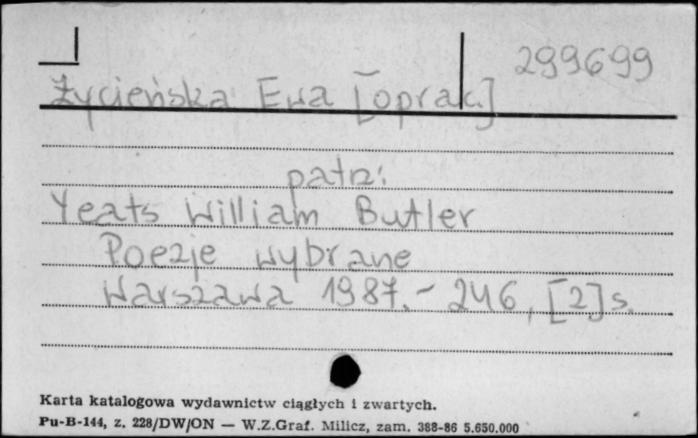 299699
Życieńska Ewa [oprac.]
patrz:
Yeats William Butler
Poezje wybrane
Warszawa 1987. - 246, [2] s.
Karta katalogowa wydawnictw ciągłych i zwartych.
Pu-B-144, z. 228/DW/ON — W.Z.Graf. Milicz, zam. 388-86 5.650.000